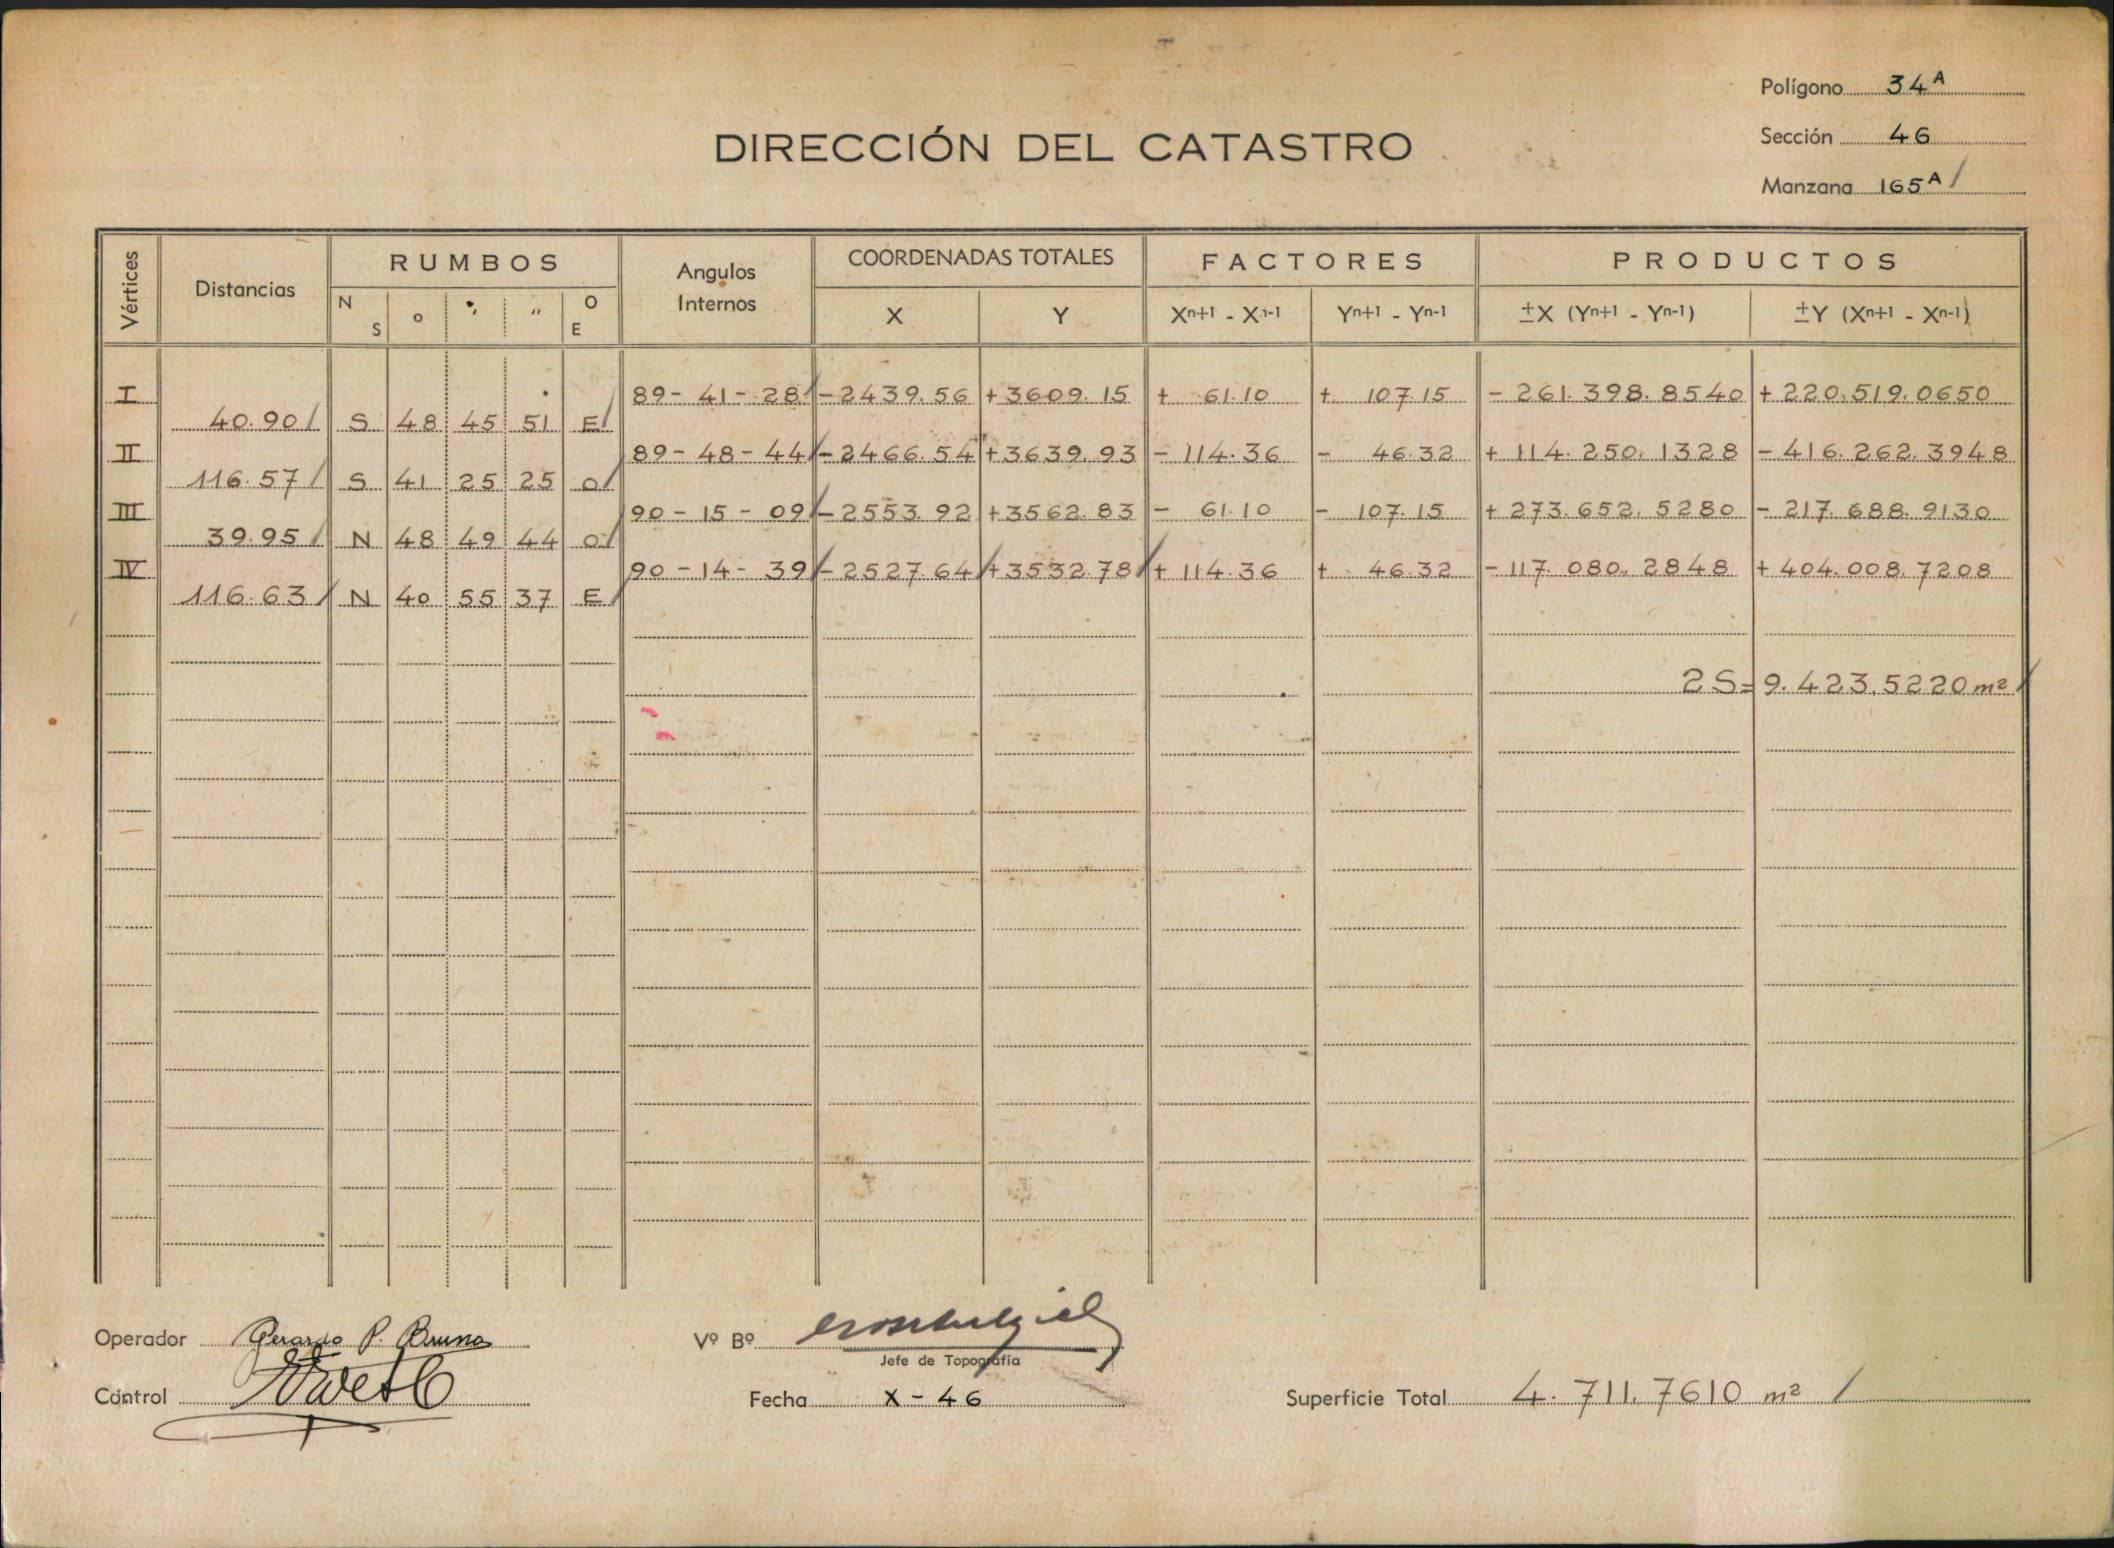 Polígono 34ᴬ
DIRECCIÓN DEL CATASTRO
Sección 46
Manzana 165ᴬ /
Vértices Distancias RUMBOS Angulos Internos COORDENADAS TOTALES FACTORES PRODUCTOS
N S ° ' " O E X Y Xⁿ⁺¹ - Xⁿ⁻¹ Yⁿ⁺¹ - Yⁿ⁻¹ ±X (Yⁿ⁺¹ - Yⁿ⁻¹) ±Y (Xⁿ⁺¹ - Xⁿ⁻¹)
I 89 - 41 - 28 / - 2439.56 + 3609.15 + 61.10 + 107.15 - 261.398.8540 + 220.519.0650
40.90 / S 48 45 51 E /
II 89 - 48 - 44 / - 2466.54 + 3639.93 - 114.36 - 46.32 + 114.250.1328 - 416.262.3948
116.57 / S 41 25 25 O /
III 90 - 15 - 09 / - 2553.92 + 3562.83 - 61.10 - 107.15 + 273.652.5280 - 217.688.9130
39.95 / N 48 49 44 O /
IV 90 - 14 - 39 / - 2527.64 / + 3532.78 / + 114.36 + 46.32 - 117.080.2848 + 404.008.7208
116.63 / N 40 55 37 E /
2S = 9.423.5220 m² /
Operador Gerardo P. Bruno
Vº Bº
Jefe de Topografía
Control
Fecha X - 46
Superficie Total 4.711.7610 m² /